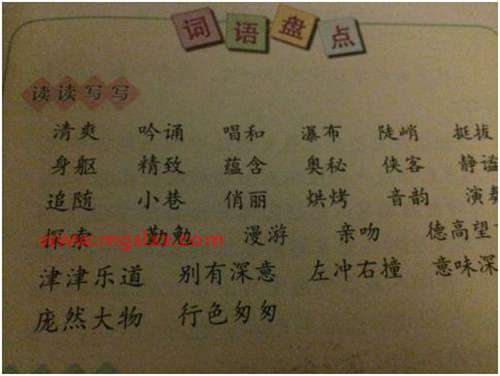 词语盘点
读读写写
清爽 吟诵 唱和 瀑布 陡峭 挺拔
身躯 精致 蕴含 奥秘 侠客 静谧
追随 小巷 俏丽 烘烤 音韵 演奏
探索 勤勉 漫游 亲吻 德高望
www.mgslxx.com
津津乐道 别有深意 左冲右撞 意味深
庞然大物 行色匆匆